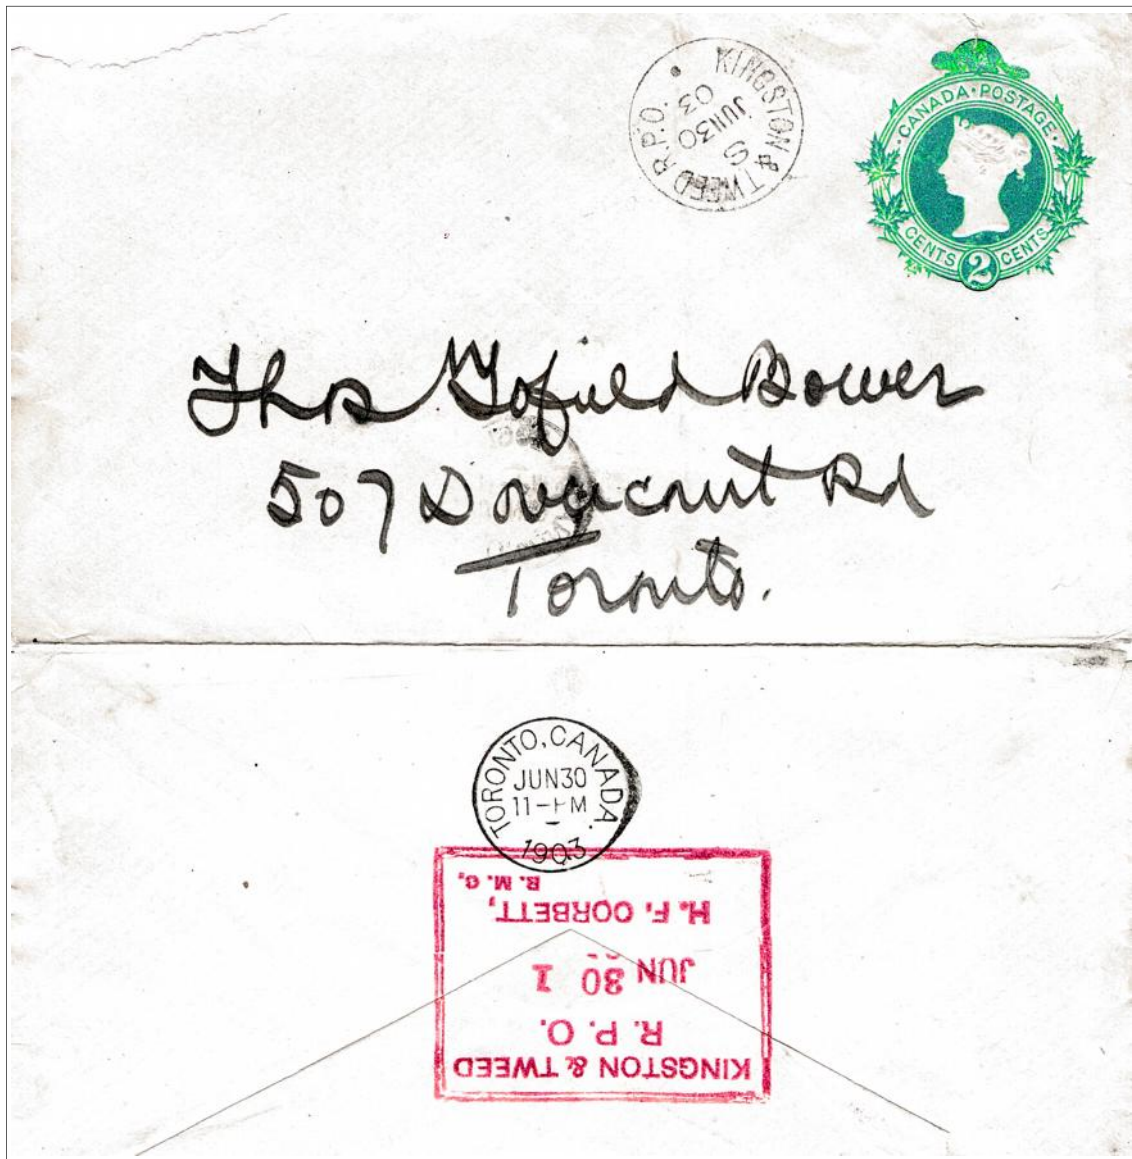 KINGSTON & TWEED R.P.O.
S
JUN 30
03
CANADA·POSTAGE·
CENTS 2 CENTS
Thos Bower
507 Dovercourt Rd
Toronto.
TORONTO, CANADA.
JUN 30
11-PM
1903
KINGSTON & TWEED
R. P. O.
JUN 30 1
H. F. CORBETT,
R. M. C,